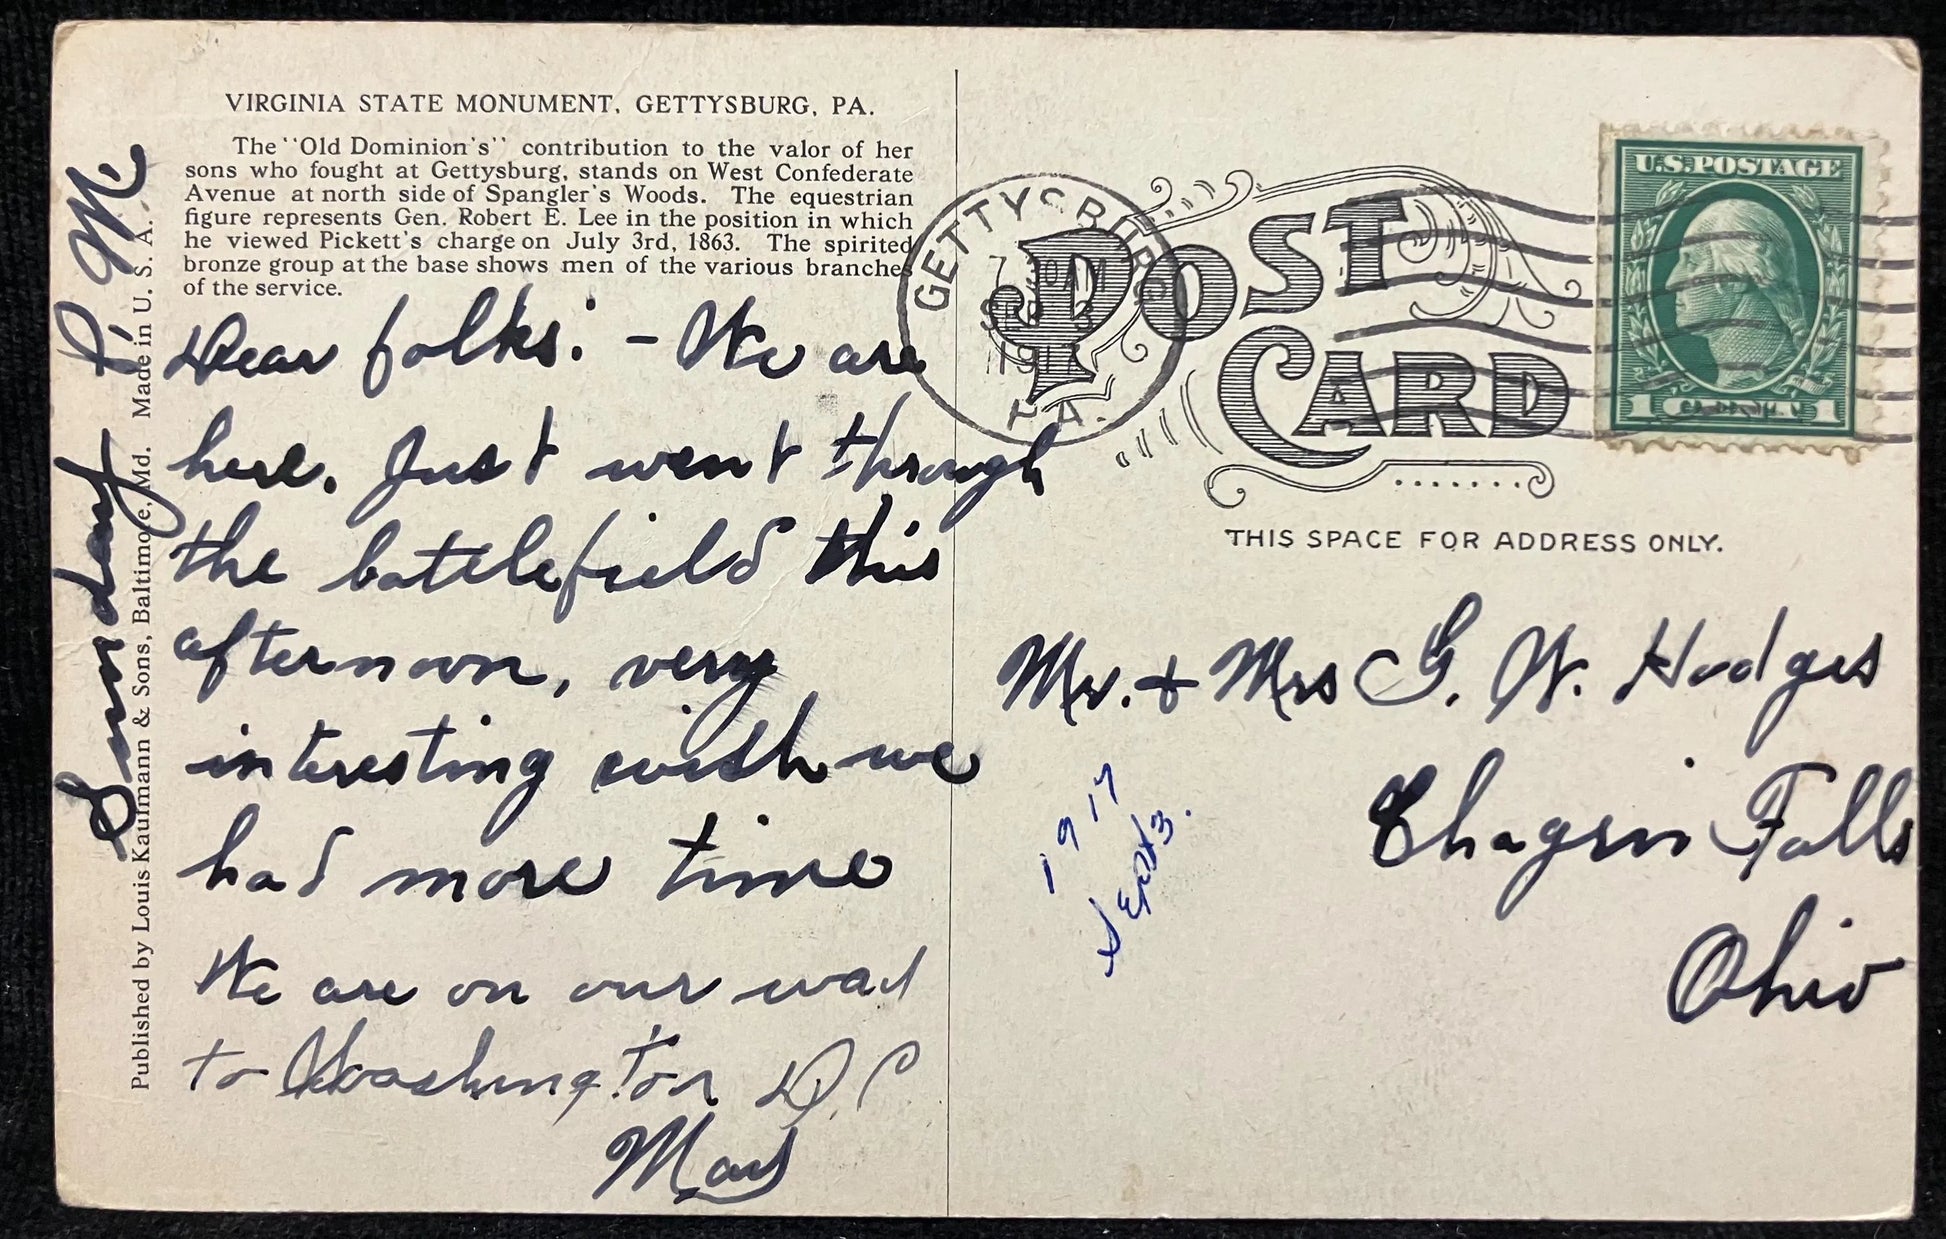 VIRGINIA STATE MONUMENT, GETTYSBURG, PA.
The "Old Dominion's" contribution to the valor of her
sons who fought at Gettysburg, stands on West Confederate
Avenue at north side of Spangler's Woods. The equestrian
figure represents Gen. Robert E. Lee in the position in which
he viewed Pickett's charge on July 3rd, 1863. The spirited
bronze group at the base shows men of the various branches
of the service.
Sunday P. M.
Published by Louis Kaufmann & Sons, Baltimore, Md. Made in U. S. A.
Dear folks: - We are
here. Just went through
the battlefield this
afternoon, very
interesting wish we
had more time
We are on our way
to Washington D.C
GETTYSBURG
7 30 AM
SEP 3
1917
PA.
POST
CARD
U.S. POSTAGE
1 1
THIS SPACE FOR ADDRESS ONLY.
Mr. & Mrs G. W. Hodges
Chagrin Falls
Ohio
1917
SEPT 3.